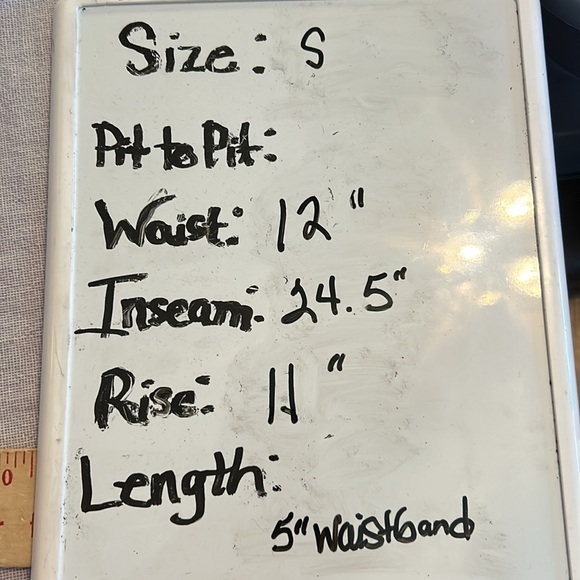 Size: S
Pit to Pit:
Waist: 12"
Inseam: 24.5"
Rise: 11"
Length:
5" Waistband
0